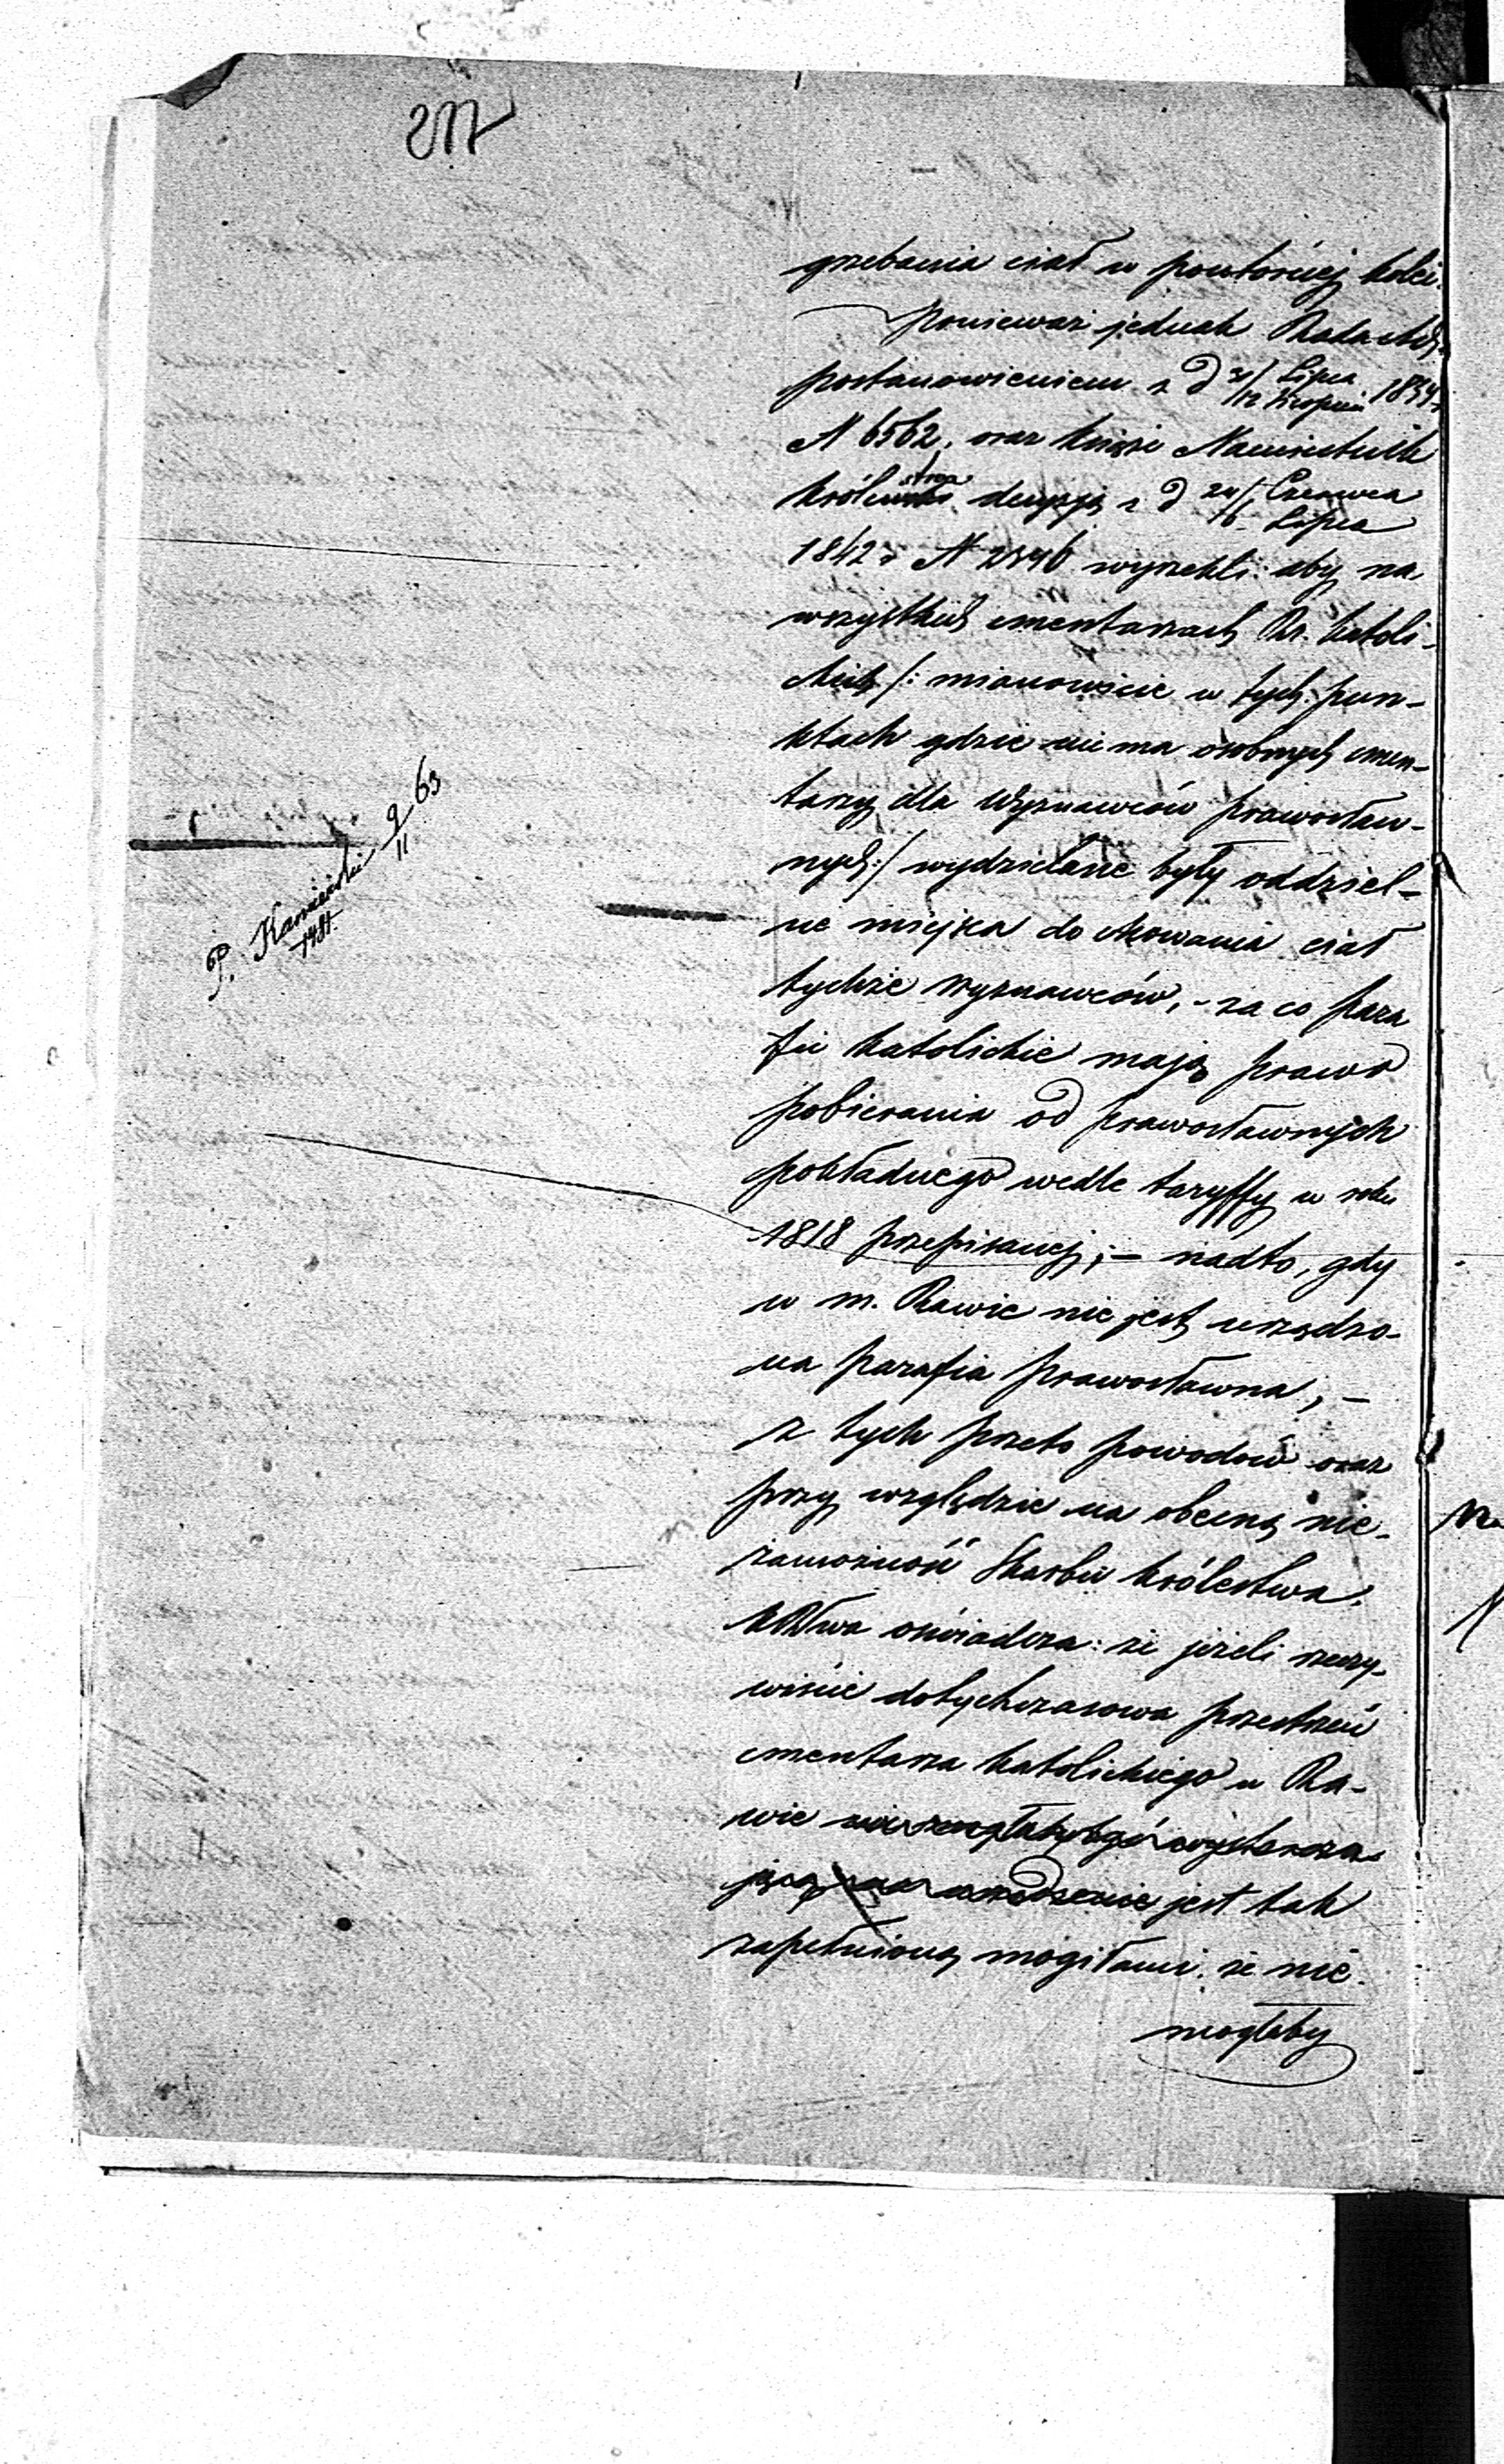 217
grzebania ciał w powtórnéj kolei.
Ponieważ jednak Rada Adj.
postanowieniem z d 31/12 Lipca/Sierpnia 1834 r
N 6562, oraz Xiąże Namiestnik
Królestwa decyzją z d 24/6 Czerwca/Lipca
1842 r N wyrzekli: aby na
wszystkich cmentarzach Rz. Katoli-
ckich /: mianowicie w tych pun-
ktach gdzie nie ma osobnych cmen-
tarzy dla Wyznawców prawosław-
nych :/ wydzielane były oddziel-
ne miejsca do chowania ciał
tychże wyznawców, - za co para
fie Katolickie mają prawo
pobierania od prawosławnych
pokładnego wedle taryffy w roku
1818 przepisanej; - nadto, gdy
w m. Rawie nie jest urządzo-
na parafia prawosławna, -
z tych przeto powodów oraz
przy względzie na obecną nie-
zamożność Skarbu Królestwa,
oświadcza: że jeżeli rzeczy-
wiście dotychczasowa przestrzeń
cmentarza Katolickiego w Ra-
wie nie mogłaby być wystarcza-
jącą jest tak
zapełnioną mogiłami, że nie
mogłaby
P. Kamieński 9/11 63